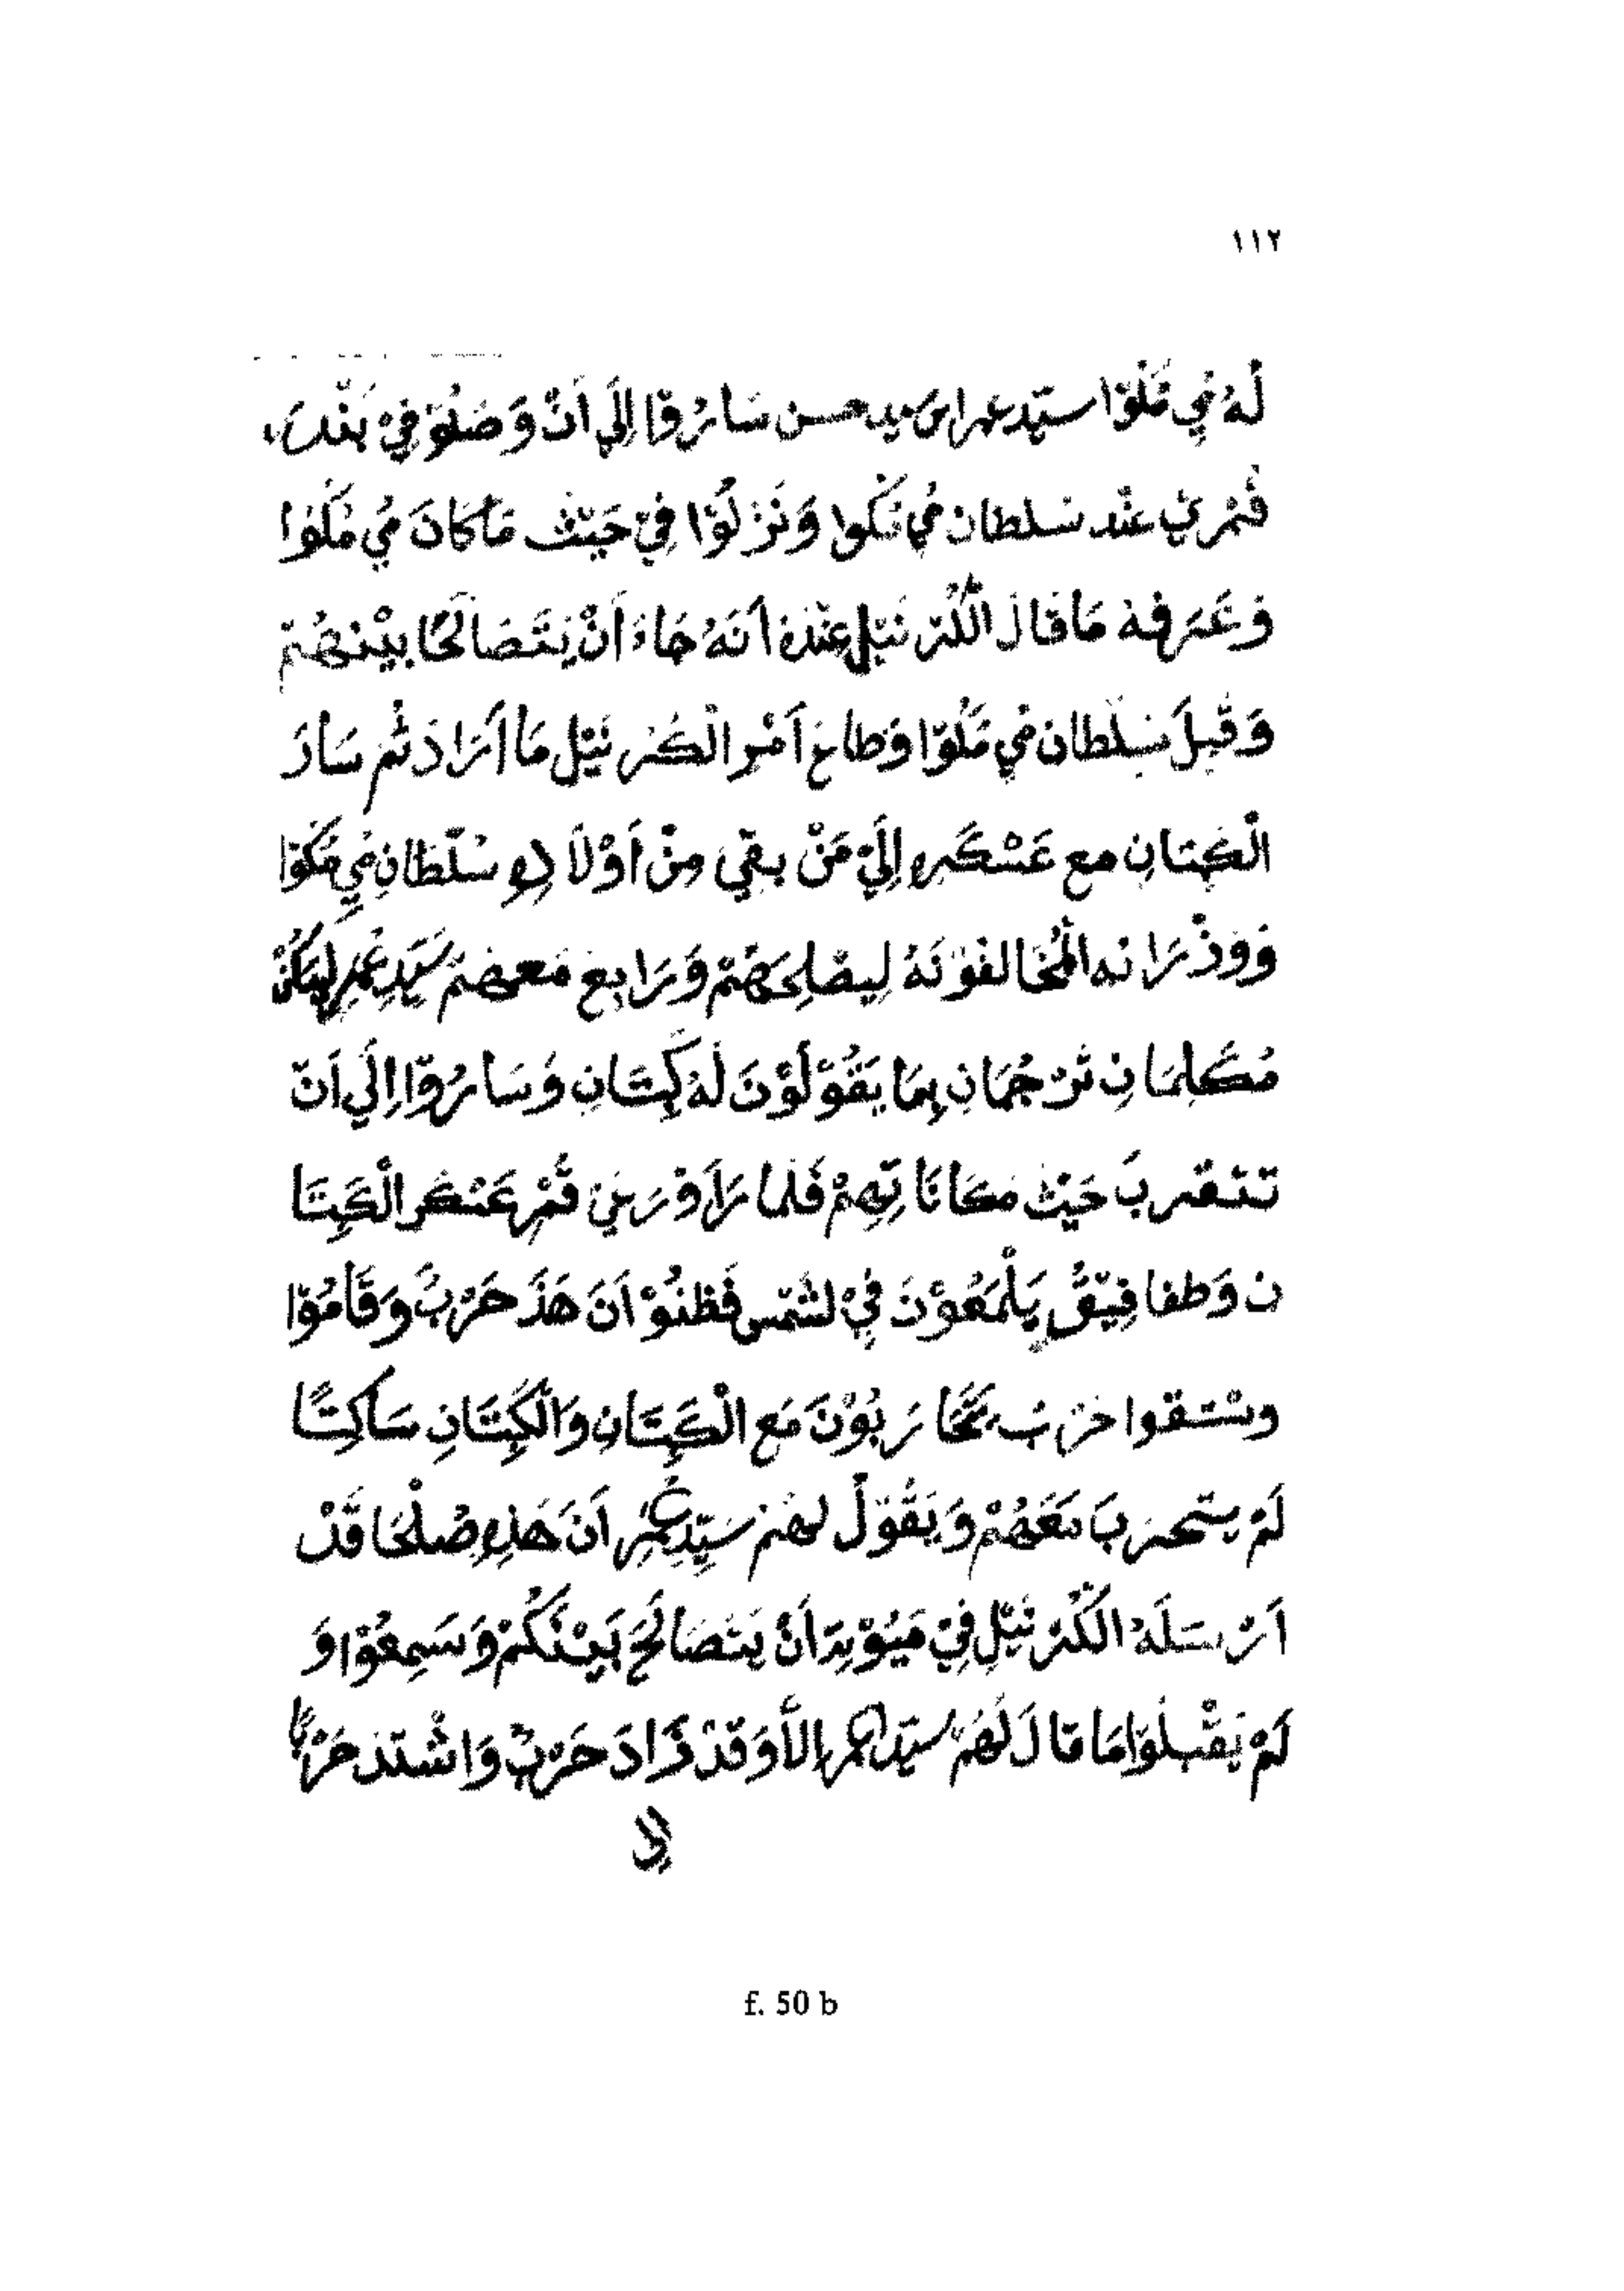 ١١٢
لَهُ مُيِ مَّلَوّا سيّد عمر ابن سيد حسن سَارُوْا إِلَي اَنْ وَصَلُوْ فِيْ بَنْدَرِ
عِنْد سُلطان مُي مَّلَوا وَنَزَلُوْا فِيْ حَيْثُ مَا كَانَ مُيِ مَّلَوْا
وَعَرَفهُ مَا قَالَ الْكُرْنَيْلِ عِنْدَهُ اَنَهُ جَاءَ اَنْ يَتَصَالَحَا بَيْنهُمْ
وَقَبِلَ سُلْطَان مُيِ مَّلَوْا وَطاعَ اَمْر الْكُرْنَيْل مَا اَرَادَ ثُم سَارَ
الْكَبِتَانِ مع عَسْكَرِهِ إِلَيْ مَنْ بقِي مِنْ اَوْلاَدِهِ سُلْطَانِ مُيِ مَّلَوْا
وَوزْرَانه الْمُخَالفوْنَهُ لِيصْلِحَهُمْ وَرَابِع مَعهُمْ سَيّدِ عُمَرِ لِيَكُنْ
مُكَلِمَانِ تَرْجُمَانِ بِمَا يَقُوْلُوْنَ لَهُ كَبِتَانِ وَسَارُوْا إِلَي اَنْ
تتقربَ حَيْث مَكَانَاتِهِمْ فَلما رَاَوْ عَسْكر الْكَبِتَا
ن وَطفا يَلْمَعُوْنَ فِيْ لشَمْس فَظنُوْ اَنَ هَذَ حَرْبُ وَقَامُوْا
وسْتقوا حَرْبُ يَحَارَبُوْنَ مَع الْكَبِتَانِ وَالْكَبِتَانِ سَاكِتًا
لَمْ يتحربَ مَعَهُمْ وَيَقُوْلَ لهُمْ سَيّدِ عُمَرِ اَنَ هَذِهِ صُلْحَا قَدْ
اَرْسَلَهُ الْكُرْنَيْلِ فِيْ مَيُوْتِ اَنْ يَتَصَالَحَ بَيْنَكُمْ وَسَمِعُوْا وَ
لَمْ يَقْبلُوْا مَا قالَ لَهُمْ سيّد عمر اِلاَّ وَقَدْ زَادَ حَرْبُ وَاشْتَد حَرْبًا
اِلا
f. 50 b